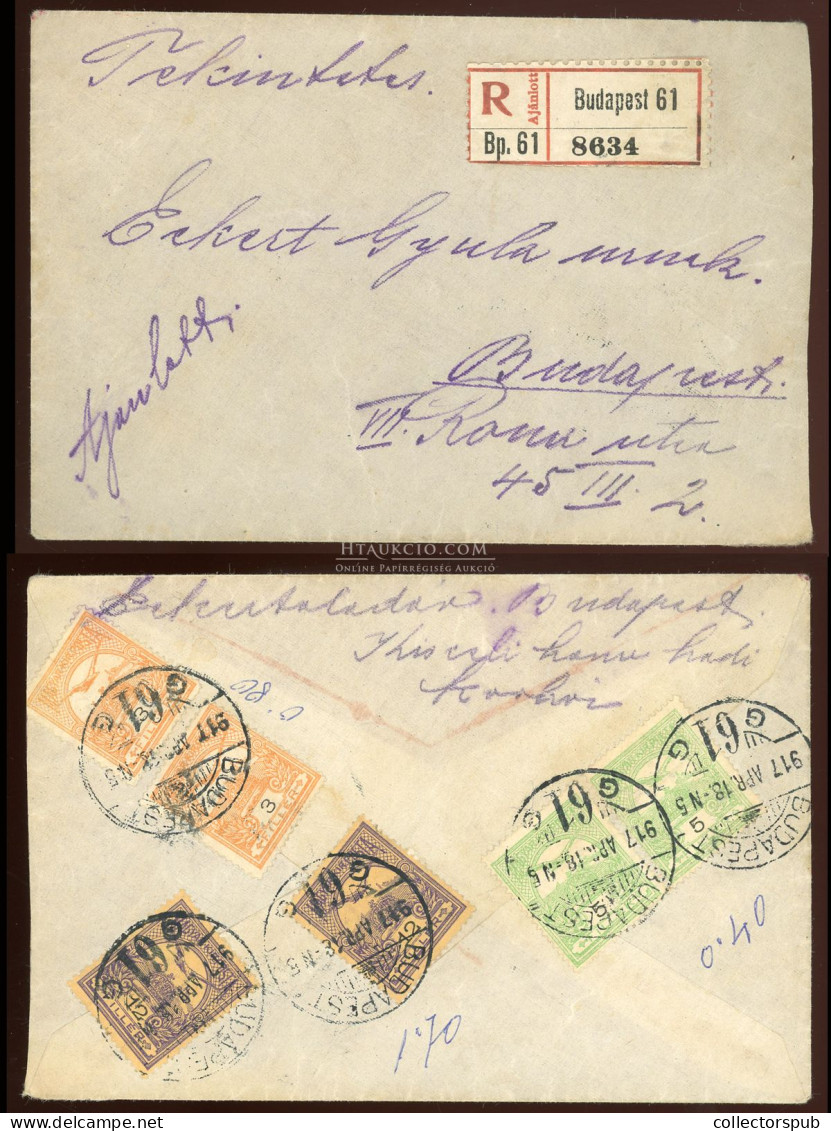 Tekintetes.
R Ajánlott Budapest 61
Bp. 61 8634
Eckert Gyula urnak.
Ajánlott.
Budapest.
VII. Rona utca
45 III. 2.
HTAUKCIO.COM
ONLINE PAPÍRRÉGISÉG AUKCIÓ
Budapest.
Kiscelli
0.80
BUDAPEST 61
917 APR. 18.-N 5
G G
3
BUDAPEST 61
917 APR. 18.-N 5
G G
5
BUDAPEST 61
917 APR. 18.-N 5
G G
5
BUDAPEST 61
917 APR. 18.-N 5
G
12
BUDAPEST 61
917 APR. 18.
G G
12
FILLÉR
0.40
1.70
collectorspub